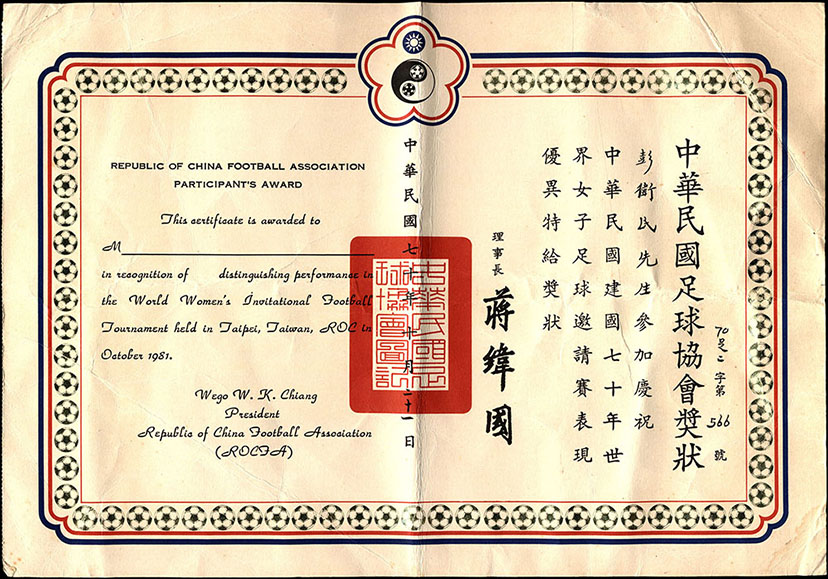 中華民國足球協會獎狀
70足二字第566號
彭衛民先生參加慶祝
中華民國建國七十年世
界女子足球邀請賽表現
優異特給獎狀
理事長 蔣緯國
中華民國七十年十月二十一日
REPUBLIC OF CHINA FOOTBALL ASSOCIATION
PARTICIPANT'S AWARD
This certificate is awarded to
M
in recognition of distinguishing performance in
the World Women's Invitational Football
Tournament held in Taipei, Taiwan, ROC in
October 1981.
Wego W. K. Chiang
President
Republic of China Football Association
(ROCFA)